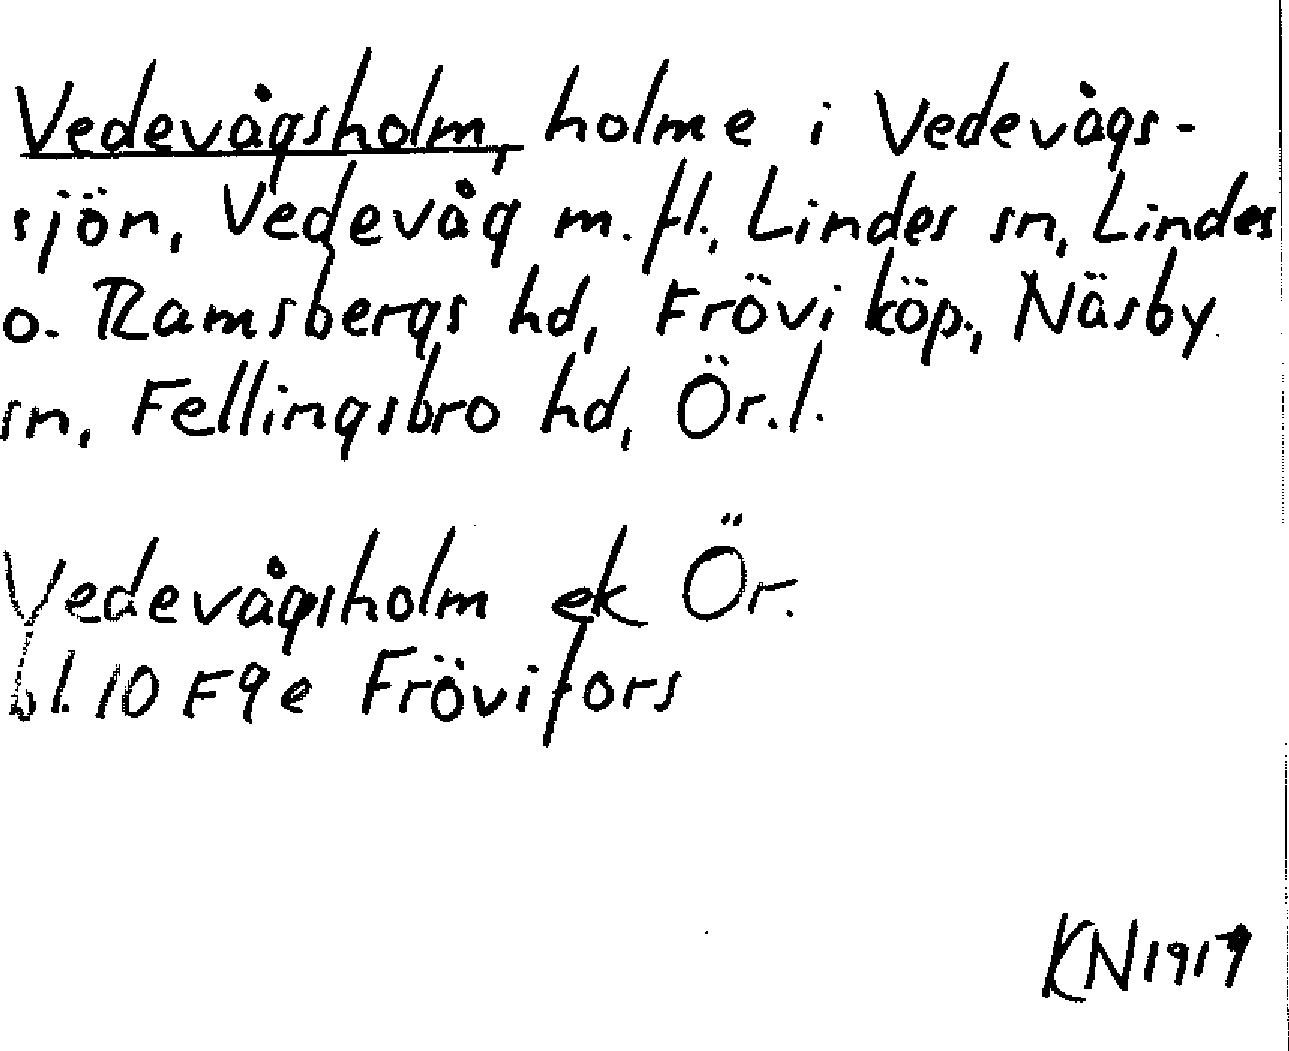 Vedevågsholm, holme i Vedevågs-
sjön, Vedevåg m.fl., Lindes sn, Lindes
o. Ramsbergs hd, Frövi köp., Näsby
sn, Fellingsbro hd, Ör.l.
Vedevågsholm ek Ör.
bl. 10 F9e Frövifors
KN 1917